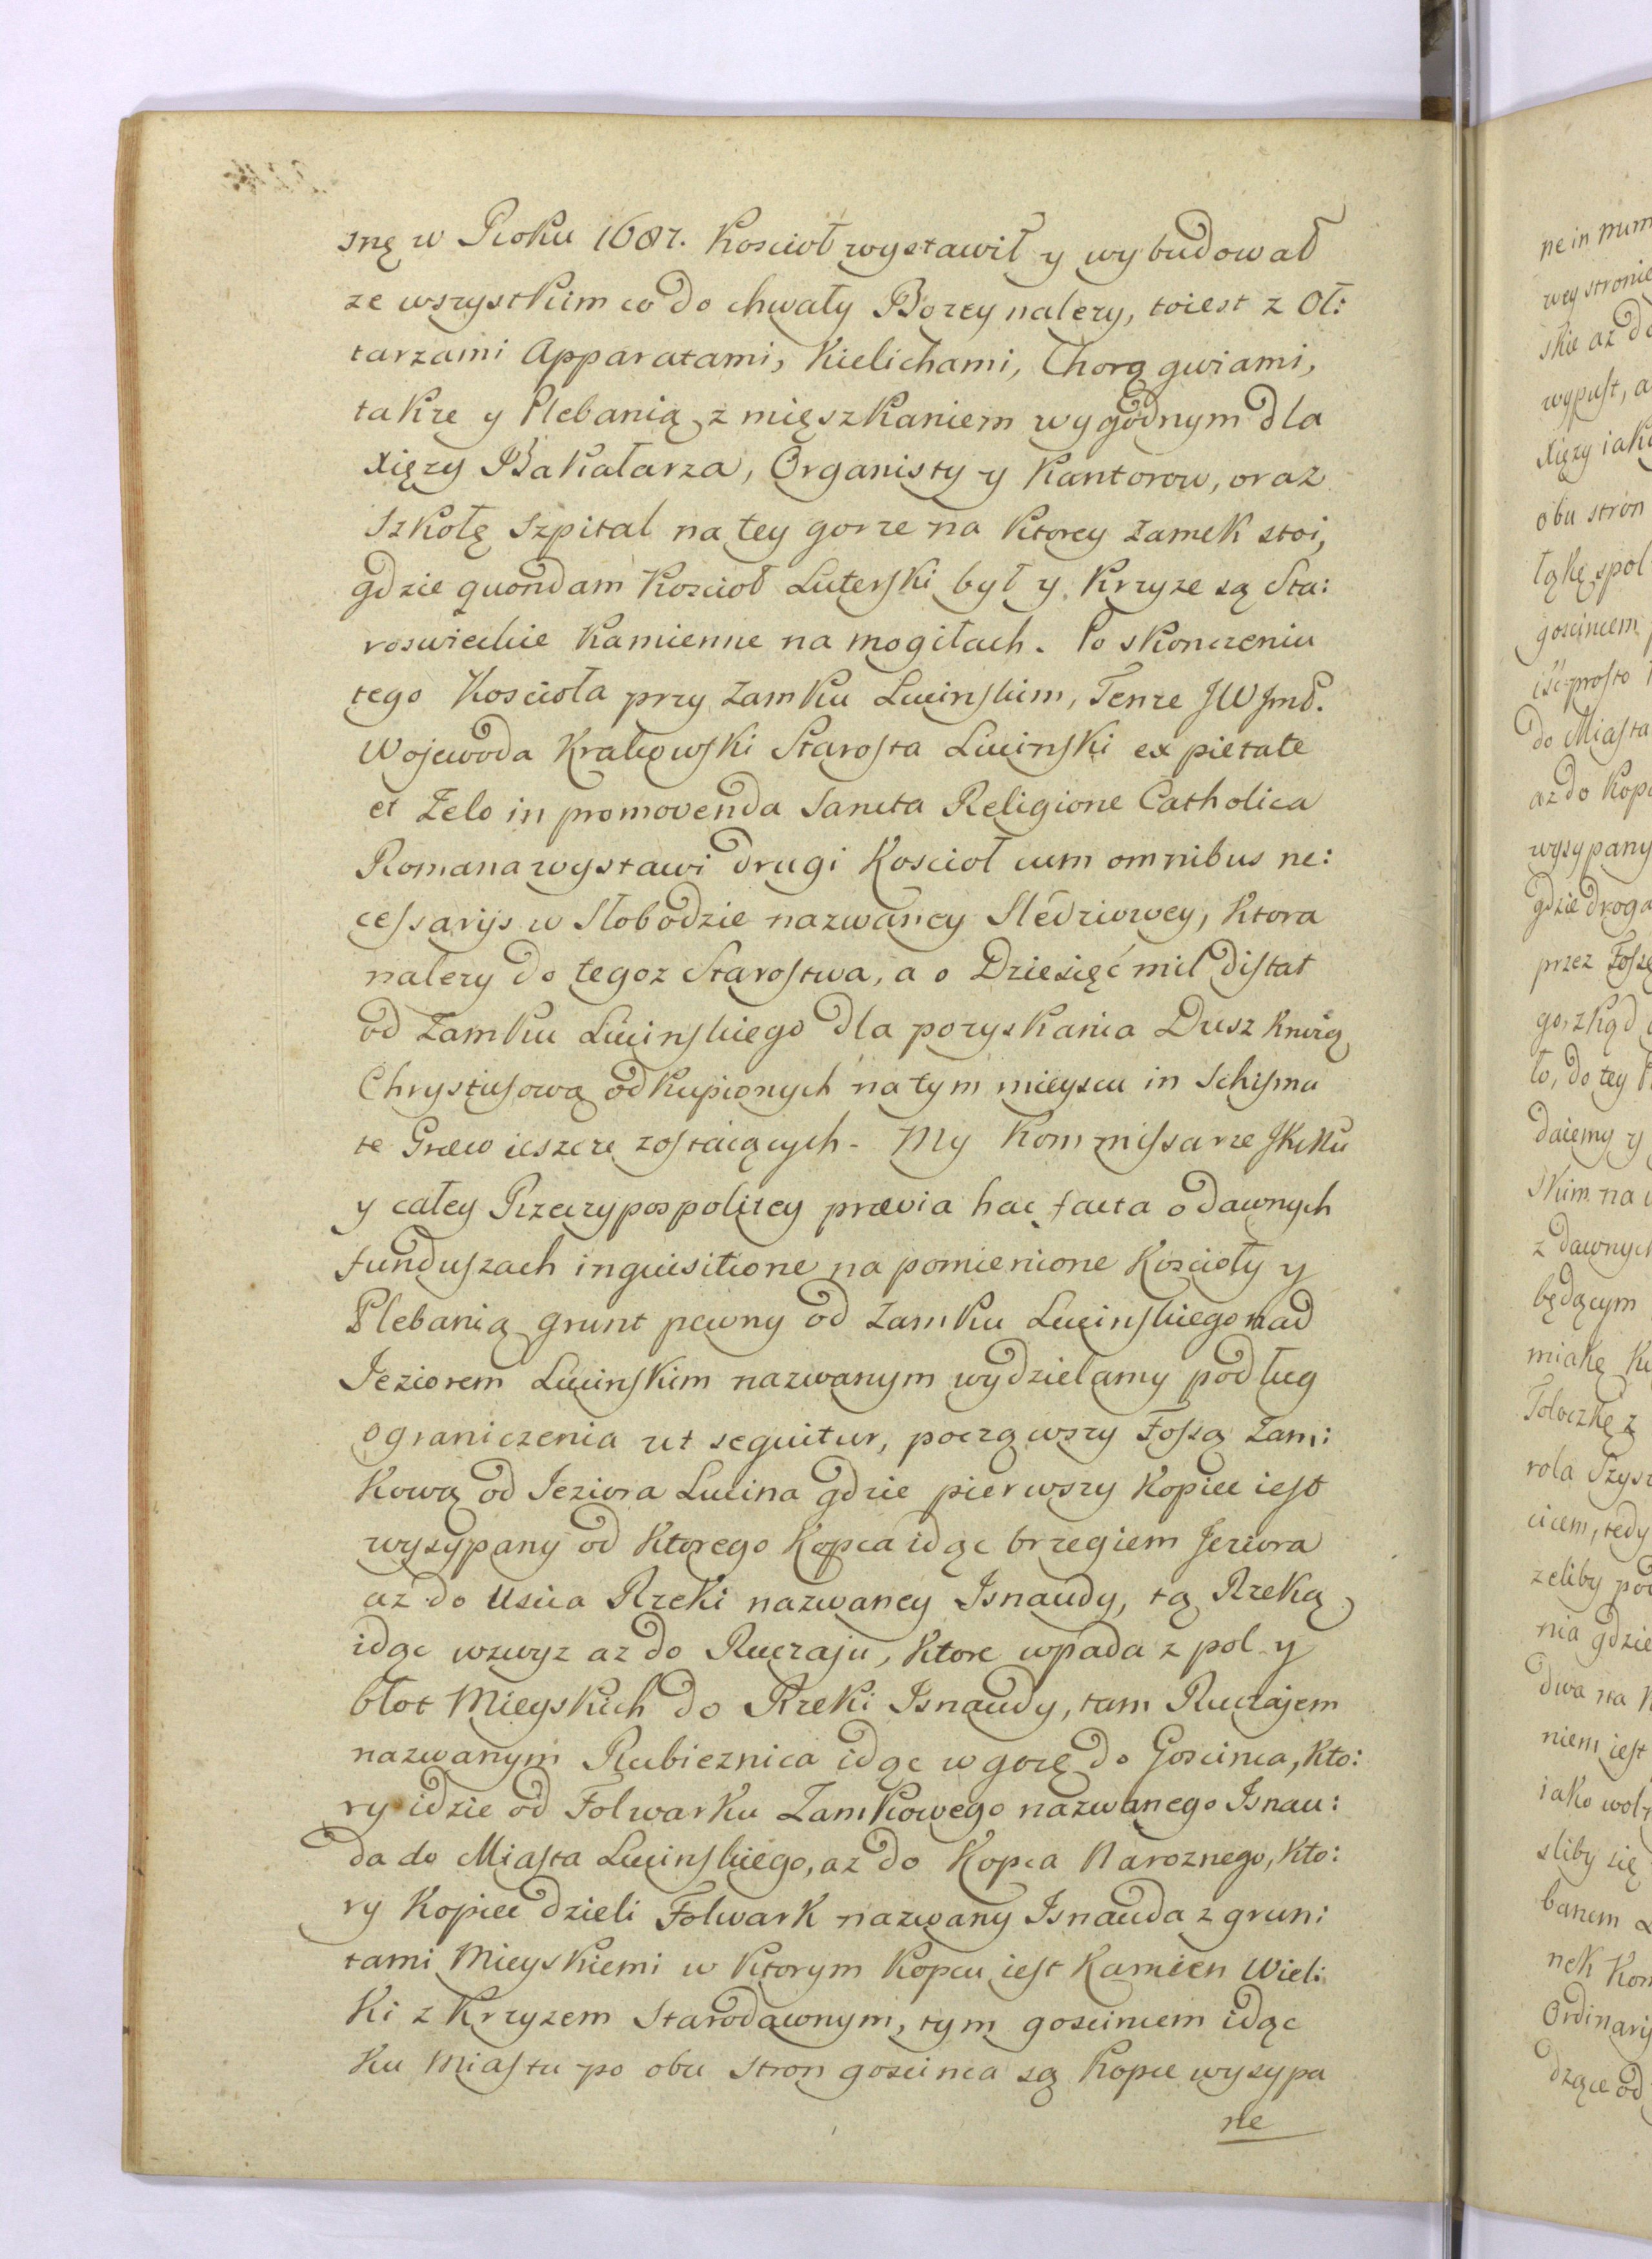 snę w Roku 1687. Koscioł wystawił y wybudował
ze wszystkim co do chwały Bozey nalezy, toiest z Oł:
tarzami Apparatami, Kielichami, Chorągwiami,
takze y Plebanią z mięszkaniem wygodnym dla
Xięzy Bakałarza, Organisty y Kantorow, oraz
Szkołę Szpital na tey gorze na Ktorey Zamek stoi,
gdzie quondam Koscioł Luterski był y Krzyze są Sta:
roswieckie Kamienne na mogiłach. Po skonczeniu
tego Kościoła przy Zamku Lucinskim, Tenze JWJmć.
Wojewoda Krakowski Starosta Lucinski ex pietate
et Zelo in promovenda Sancta Religione Catholica
Romana wystawi drugi Kosciol cum omnibus ne:
cessarijs w Słobodzie nazwaney Sledziowey, Ktora
nalezy do tegoz Starostwa, a o Dziesięć mil distat
od Zamku Lucinskiego dla pozyskania Dusz Krwią
Chrystusową odkupionych na tym mieyscu in Schisma
te Græco ieszcze zostaiących. My Kommissarze JKrMci
y całey Rzeczypospolitey prævia hac facta o dawnych
funduszach inquisitione na pomienione Koscioły y
Plebanią grunt pewny od Zamku Lucinskiego nad
Ieziorem Lucinskim nazwanym wydzielamy podług
ograniczenia ut sequitur, począwszy Fossą Zam:
Kową od Ieziora Lucina gdzie pierwszy Kopiec iest
wysypany od Ktorego Kopca idąc brzegiem Jeziora
az do Uscia Rzeki nazwaney Isnaudy, tą Rzeką
idąc wzwyz az do Ruczaju, Ktore wpada z pol y
błot Mieyskich do Rzeki Isnaudy, tam Ruczajem
nazwanym Rubieznica idąc w gorę do Goscinca, Kto:
ry idzie od Folwarku Zamkowego nazwanego Isnau:
da do Miasta Lucinskiego, az do Kopca Naroznego, Kto:
ry Kopiec dzieli Folwark nazwany Isnauda z grun:
tami Mieyskiemi w Ktorym Kopcu iest Kamien Wiel:
Ki z Krzyzem Starodawnym, tym goscincem idąc
Ku Miastu po obu Stron goscinca są Kopce wysypa
ne
ne in num
wey stronie
skie az do
wypust, a
Xięzy iako
obu stron
łąkę spol
goscincem
iść prosto
do Miasta
az do Kopc
wysypany
gdzie droga
przez Fossę
go, zkąd
to, do tey
daiemy y
skim na
z dawnych
będącym
miakę
Toloczkę z
rola Szysz
cicem, tedy
zeliby pod
nia gdzie
dwa na
niem iest
iako wol
sliby się
banem
nek Kom
Ordinarij
dzące od